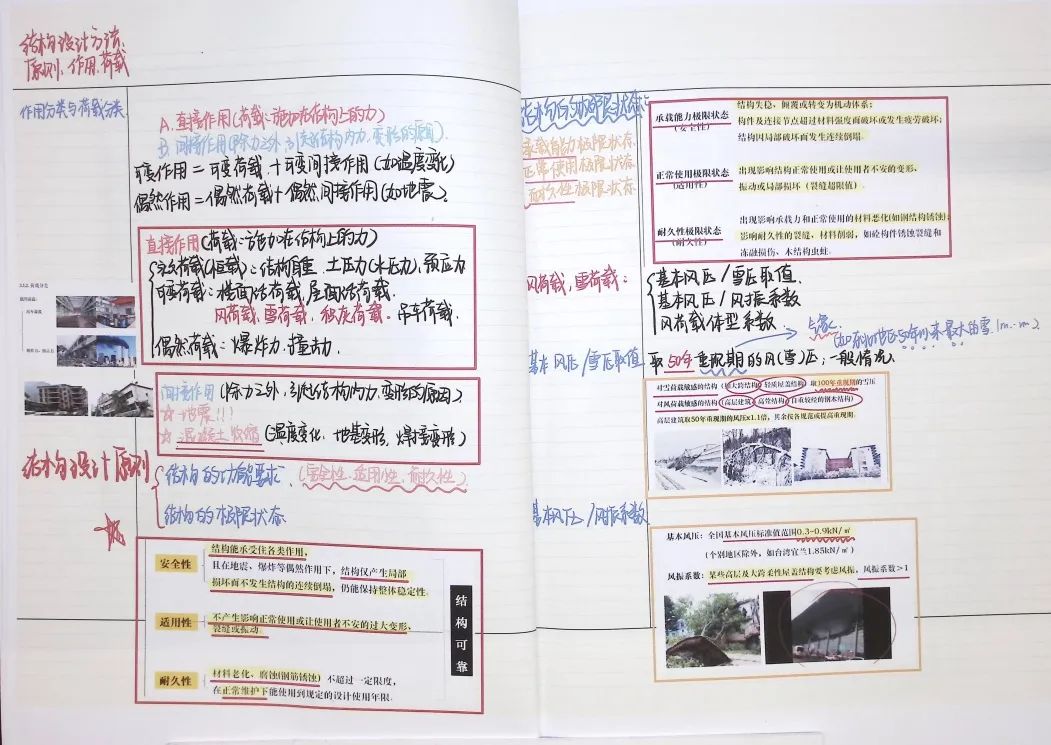 结构设计方法、
原则、作用、荷载
作用分类与荷载分类
A.直接作用(荷载:施加在结构上的力)
B.间接作用(除力之外,引起结构内力、变形的原因)
可变作用=可变荷载+可变间接作用(如温度变化)
偶然作用=偶然荷载+偶然间接作用(如地震)。
直接作用(荷载:施加在结构上的力)
永久荷载(恒载):结构自重、土压力(水压力),预应力
可变荷载:楼面活荷载,屋面活荷载、
风荷载、雪荷载、积灰荷载、吊车荷载.
偶然荷载:爆炸力、撞击力.
间接作用(除力之外,引起结构内力、变形的原因)
☆地震!!!
☆混凝土收缩(温度变化、地基变形,焊接变形)
结构设计原则
结构的功能要求、(安全性、适用性、耐久性)
结构的极限状态
安全性
结构能承受住各类作用,
且在地震、爆炸等偶然作用下,结构仅产生局部
损坏而不发生结构的连续倒塌,仍能保持整体稳定性。
适用性
不产生影响正常使用或让使用者不安的过大变形、
裂缝或振动。
耐久性
材料老化、腐蚀(钢筋锈蚀)不超过一定限度,
在正常维护下能使用到规定的设计使用年限。
结构可靠
承载能力极限状态
正常使用极限状态
耐久性极限状态
承载能力极限状态
(安全性)
结构失稳,倾覆或转变为机动体系;
构件及连接节点超过材料强度而破坏或发生疲劳破坏;
结构因局部破坏而发生连续倒塌。
正常使用极限状态
(适用性)
出现影响结构正常使用或让使用者不安的变形、
振动或局部损坏(裂缝超限值)。
耐久性极限状态
(耐久性)
出现影响承载力和正常使用的材料恶化(如钢结构锈蚀);
影响耐久性的裂缝,材料削弱,如砼构件锈蚀裂缝和
冻融损伤、木结构虫蛀。
风荷载,雪荷载:
基本风压/雪压取值
基本风压/风振系数
风荷载体型系数
基本风压/雪压取值
取50年重现期的风(雪)压,一般情况
对雪荷载敏感的结构(如大跨结构、轻质屋盖结构)取100年重现期的雪压
对风荷载敏感的结构(高层建筑、高耸结构、自重较轻的钢木结构)
高层建筑取50年重现期的风压x1.1倍,其余按各规范或提高重现期。
基本风压/风振系数
基本风压:全国基本风压标准值范围0.3-0.9kN/㎡
(个别地区除外,如台湾宜兰1.85kN/㎡)
风振系数:某些高层及大跨柔性屋盖结构要考虑风振,风振系数>1